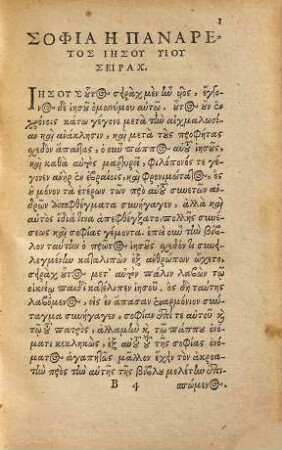 1
ΣΟΦΙΑ Η ΠΑΝΑΡΕ-
ΤΟΣ ΙΗΣΟΥ ΥΙΟΥ
ΣΕΙΡΑΧ.
ΙΗΣΟΥΣ οὗτος σηρὰχ μὲν ἦν υἱὸς, ἔγγο-
νος δὲ ἰησοῦ ὁμωνύμου αὐτῷ. οὗτος οὖν ἐν
χρόνοις κάτω γέγονε μετὰ τὴν αἰχμαλωσί-
αν καὶ ἀνάκλησιν, καὶ μετὰ τοὺς προφήτας
σχεδὸν ἅπαντας, ὁ οὖν πάππος αὐτοῦ ἰησοῦς,
καὶ καθὰ αὐτὸς μαρτυρεῖ, φιλόπονός τε γέ-
γονεν ἀνὴρ ἐν ἑβραίοις, καὶ φρονιμώτατος,
ὃς οὐ μόνον τὰ ἑτέρων τῶν πρὸ αὐτοῦ συνετῶν ἀν-
δρῶν ἀποφθέγματα συνήγαγεν, ἀλλὰ καὶ
αὐτὸς ἴδιά τινα ἀπεφθέγξατο, πολλῆς συνέ-
σεως καὶ σοφίας γέμοντα. ἐπεὶ οὖν τὴν βί-
βλον ταύτην ὁ πρῶτος ἰησοῦς σχεδόν τι συν-
ειλεγμένην καταλιπὼν ἐξ ἀνθρώπων ᾤχετο,
σηρὰχ οὗτος μετ' αὐτὸν πάλιν λαβὼν τῷ
οἰκείῳ παιδὶ κατέλιπεν ἰησοῦ. ὃς δὴ ταύτης
λαβόμενος, εἰς ἓν ἅπασαν ἐναρμόνιον σύν-
ταγμα συνήγαγεν, σοφίαν ἐπί τε αὐτοῦ κ
τῷ τοῦ πατρὸς, ἀλλὰ μὴν κ τῷ τοῦ πάππου ὀνό-
ματι κεκληκὼς, ἐξ αὐτοῦ τοῦ τῆς σοφίας ὀνό-
ματος ἀγαπητῶς μᾶλλον ἔχειν τὸν ἀκροα-
τὴν πρὸς τὴν αὐτῆς τῆς βίβλου μελέτην ἐπι-
B 4 σπώμενος,